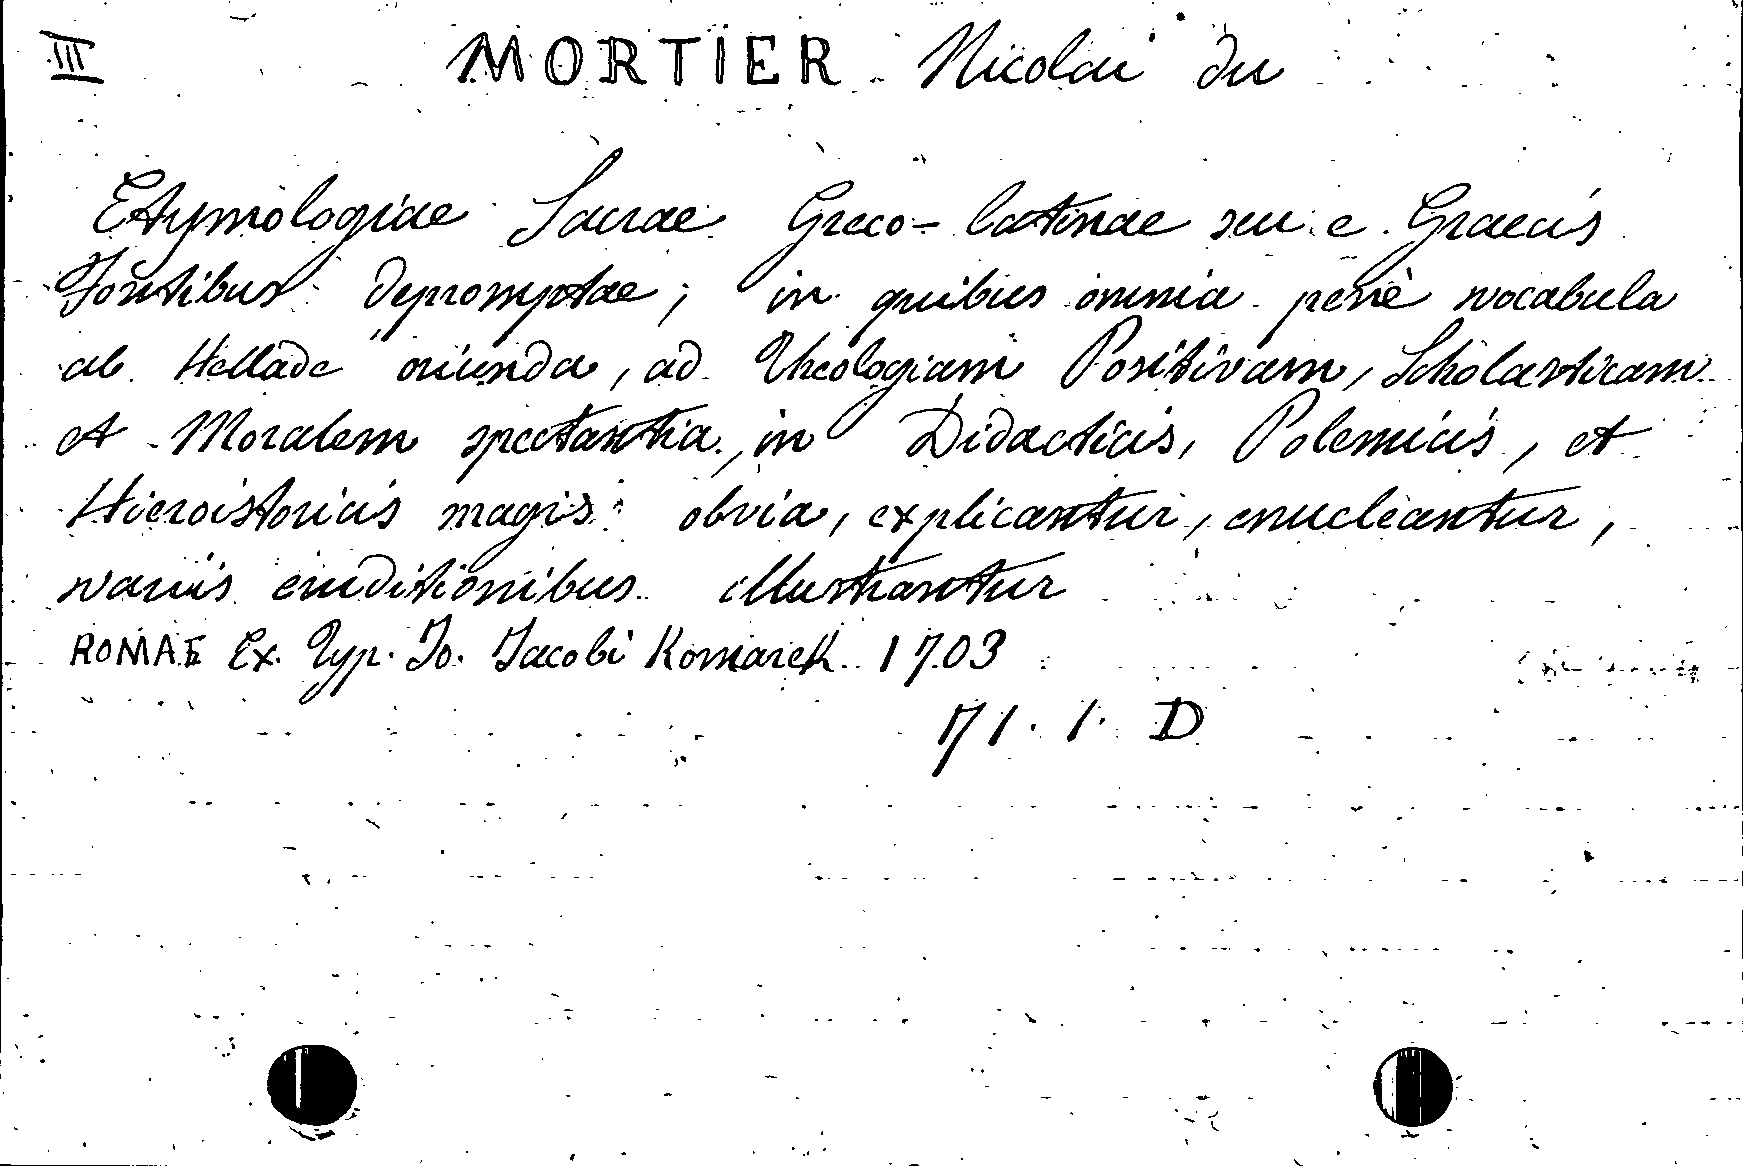 III MORTIER Nicolai du
Etymologiae Sacrae Greco-latinae seu e Graecis
Fontibus depromptae; in quibus omnia penè vocabula
ab Hellade oriunda, ad Theologiam Positivam, Scholasticam
et Moralem spectantia, in Didacticis, Polemicis, et
Hieroistoricis magis obvia, explicantur, enucleantur,
variis eruditionibus illustrantur
ROMAE Ex. Typ. Jo. Jacobi Komarek 1703
71. 1. D